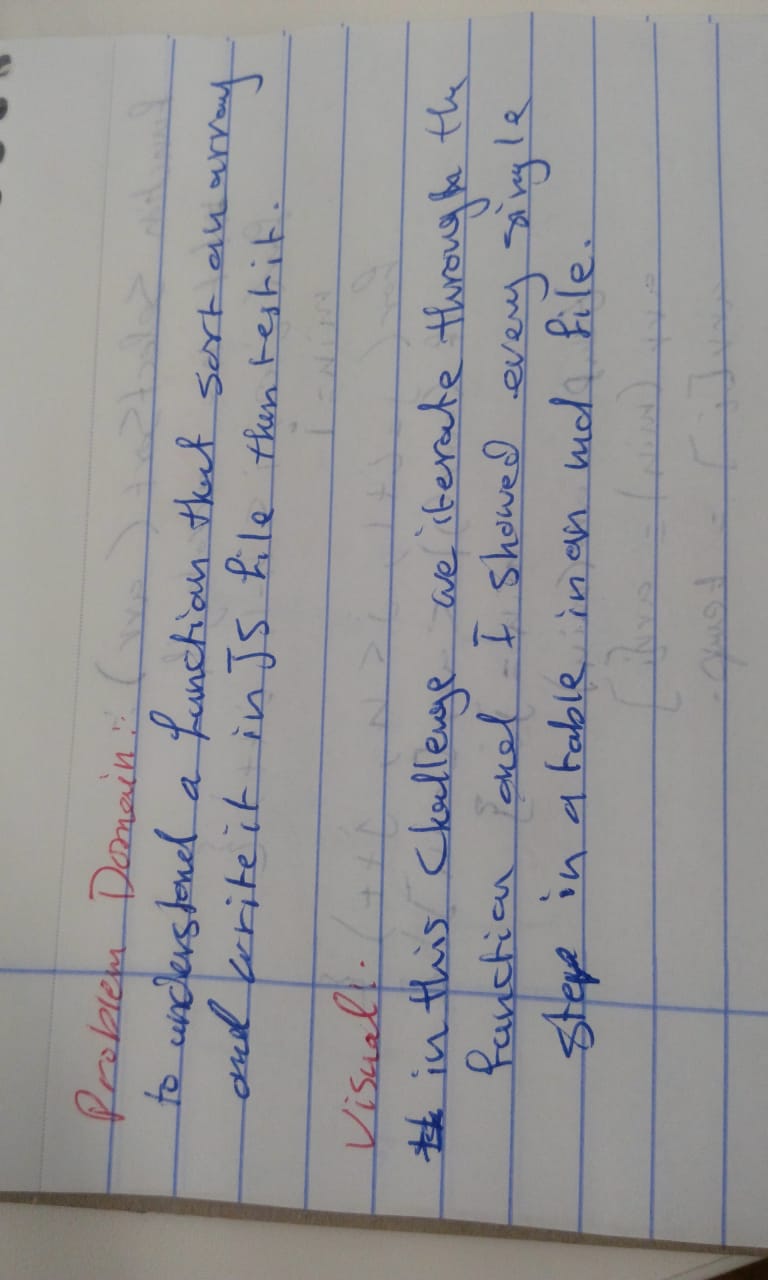 Problem Domain:
to understand a function that sort an array
and write it in JS file then test it.
Visual:
in this challenge we iterate through the
function and I showed every single
step in a table in an md file.